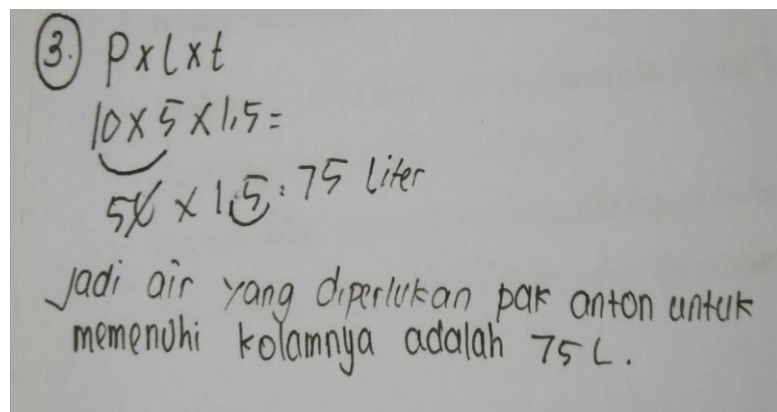 3. P x l x t
10 x 5 x 1,5 =
50 x 1,5 : 75 liter
Jadi air yang diperlukan pak anton untuk
memenuhi kolamnya adalah 75 L.